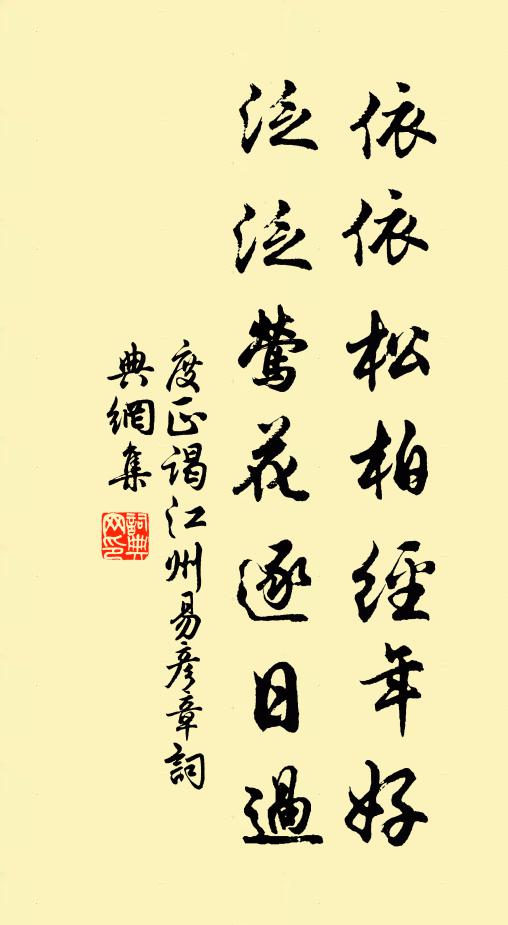 依依松柏經年好
泛泛鶯花逐日過
度正謁江州易彥章詞
典網集
詞典
网印